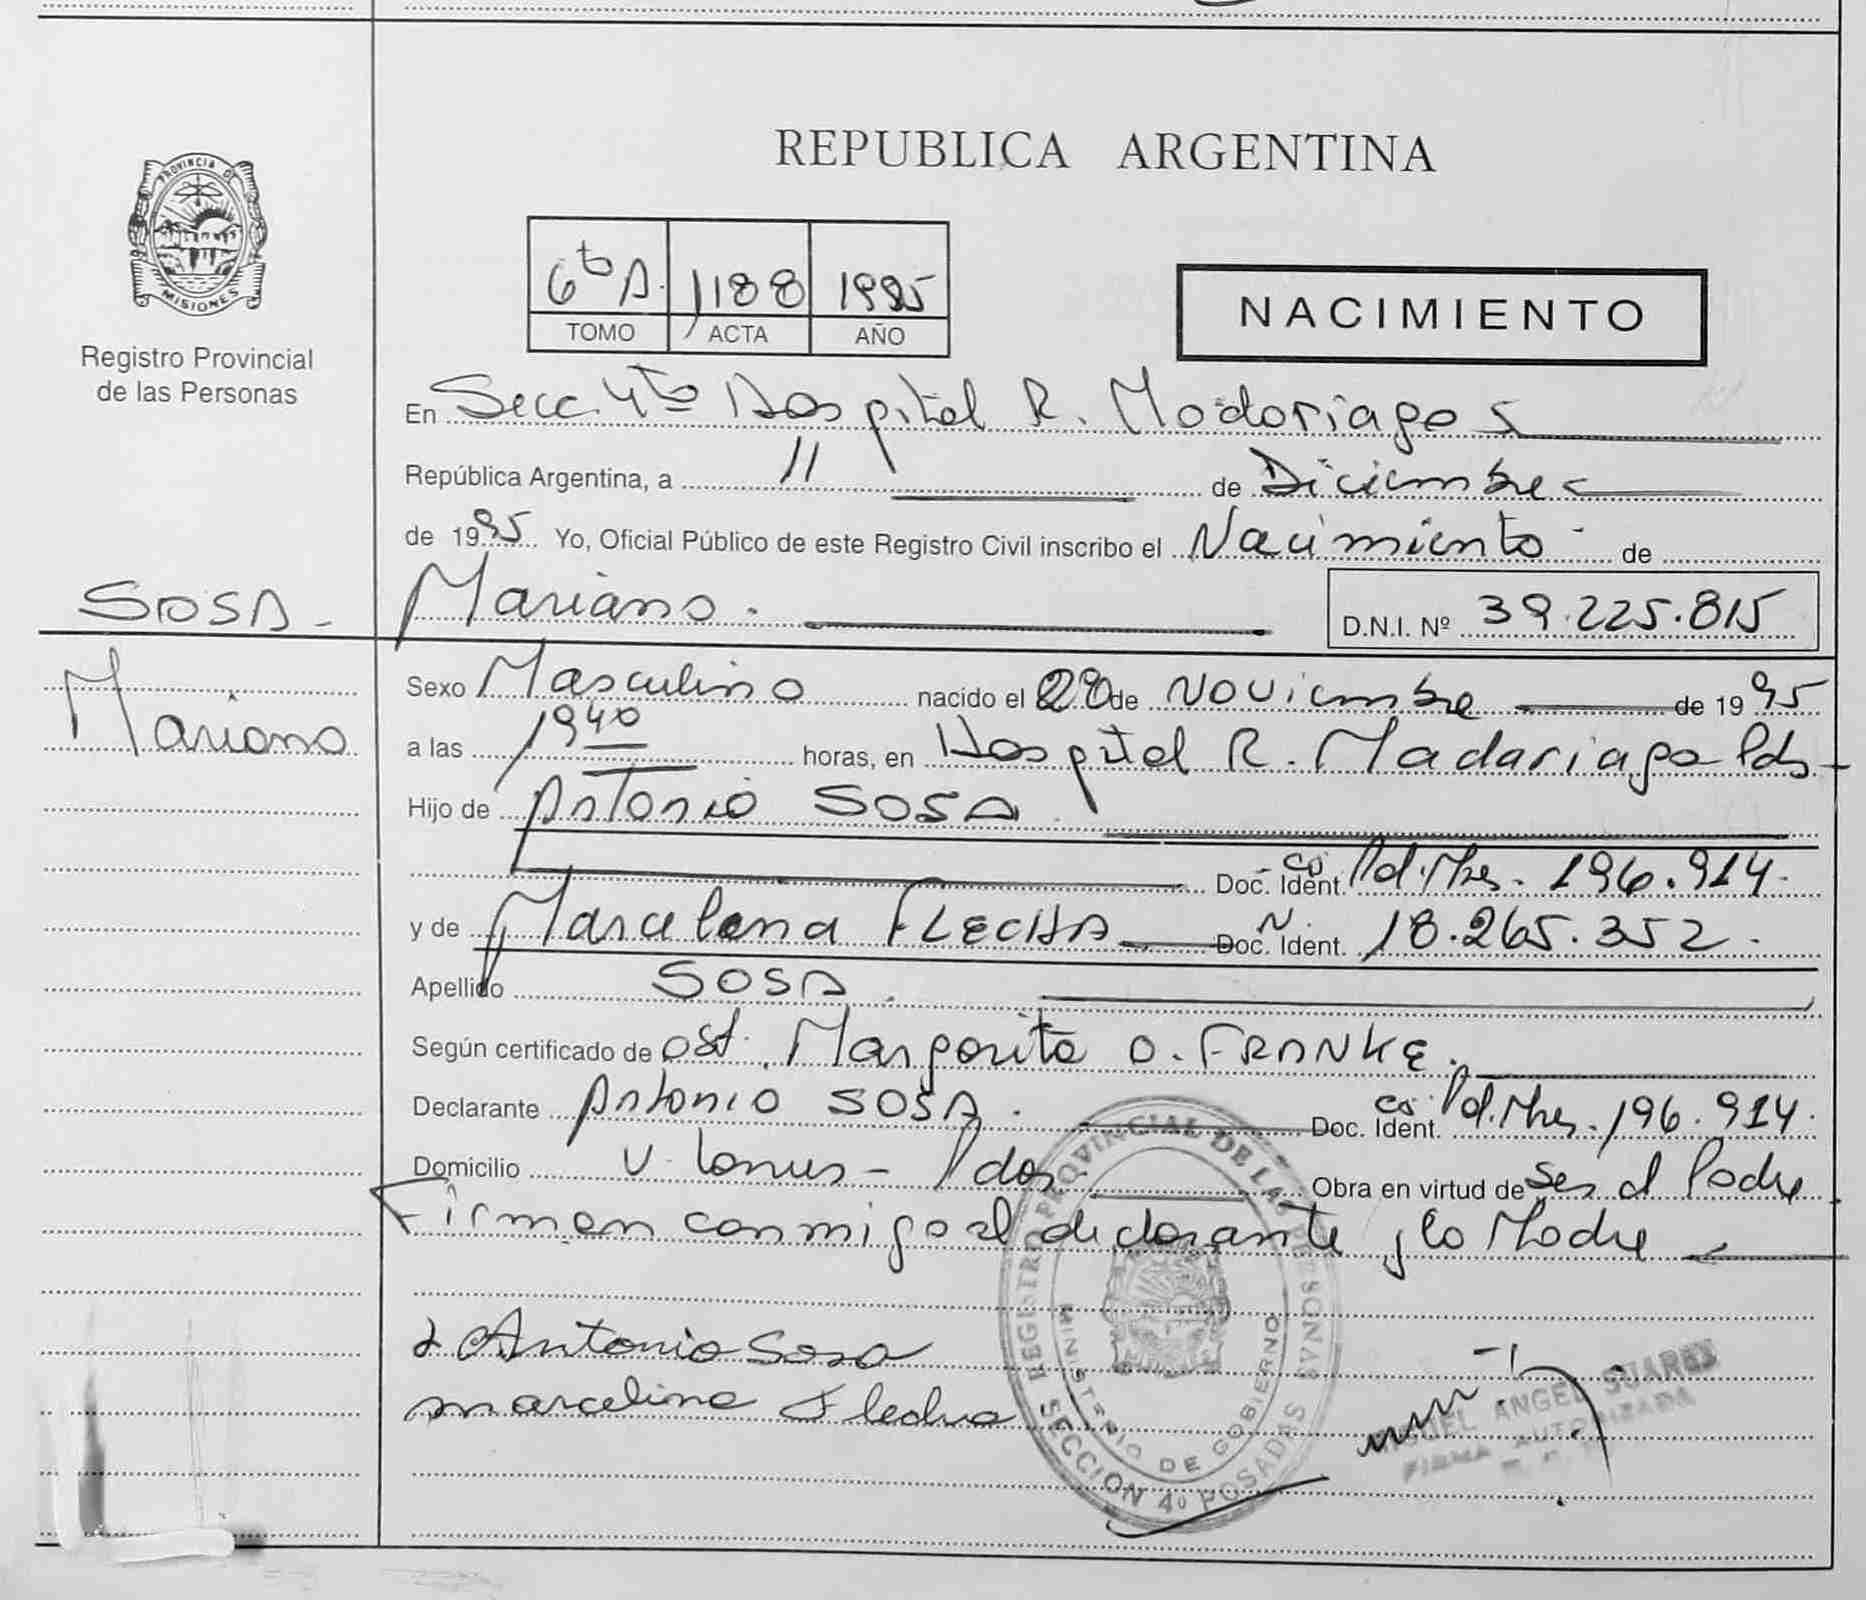 REPUBLICA ARGENTINA
PROVINCIA DE
MISIONES
Registro Provincial
de las Personas
6to A. 1188 1995
TOMO ACTA AÑO
NACIMIENTO
En Secc. 4ta Hospital R. Madariaga
República Argentina, a 11 de Diciembre
de 1995 Yo, Oficial Público de este Registro Civil inscribo el Nacimiento de
SOSA - Mariano. D.N.I. Nº 39.225.815
Mariano
Sexo Masculino nacido el 28 de Noviembre de 1995
a las 1940 horas, en Hospital R. Madariaga Pds-
Hijo de Antonio SOSA
Doc. Ident. CI Pol. Mnes. 196.914.
y de Marcelina FLECHA Doc. N. Ident. 18.265.352.
Apellido SOSA.
Según certificado de Obst. Margarita O. FRANKE.
Declarante Antonio SOSA. Doc. Ident. CI Pol. Mnes. 196.914.
Domicilio V. Lanus - Pdas. Obra en virtud de Ser el Padre
Firman conmigo el declarante y la Madre
Antonio Sosa
marcelina Flecha
REGISTRO PROVINCIAL DE LAS PERSONAS
MINISTERIO DE GOBIERNO
SECCION 4º POSADAS
MIGUEL ANGEL SUARES
FIRMA AUTORIZADA